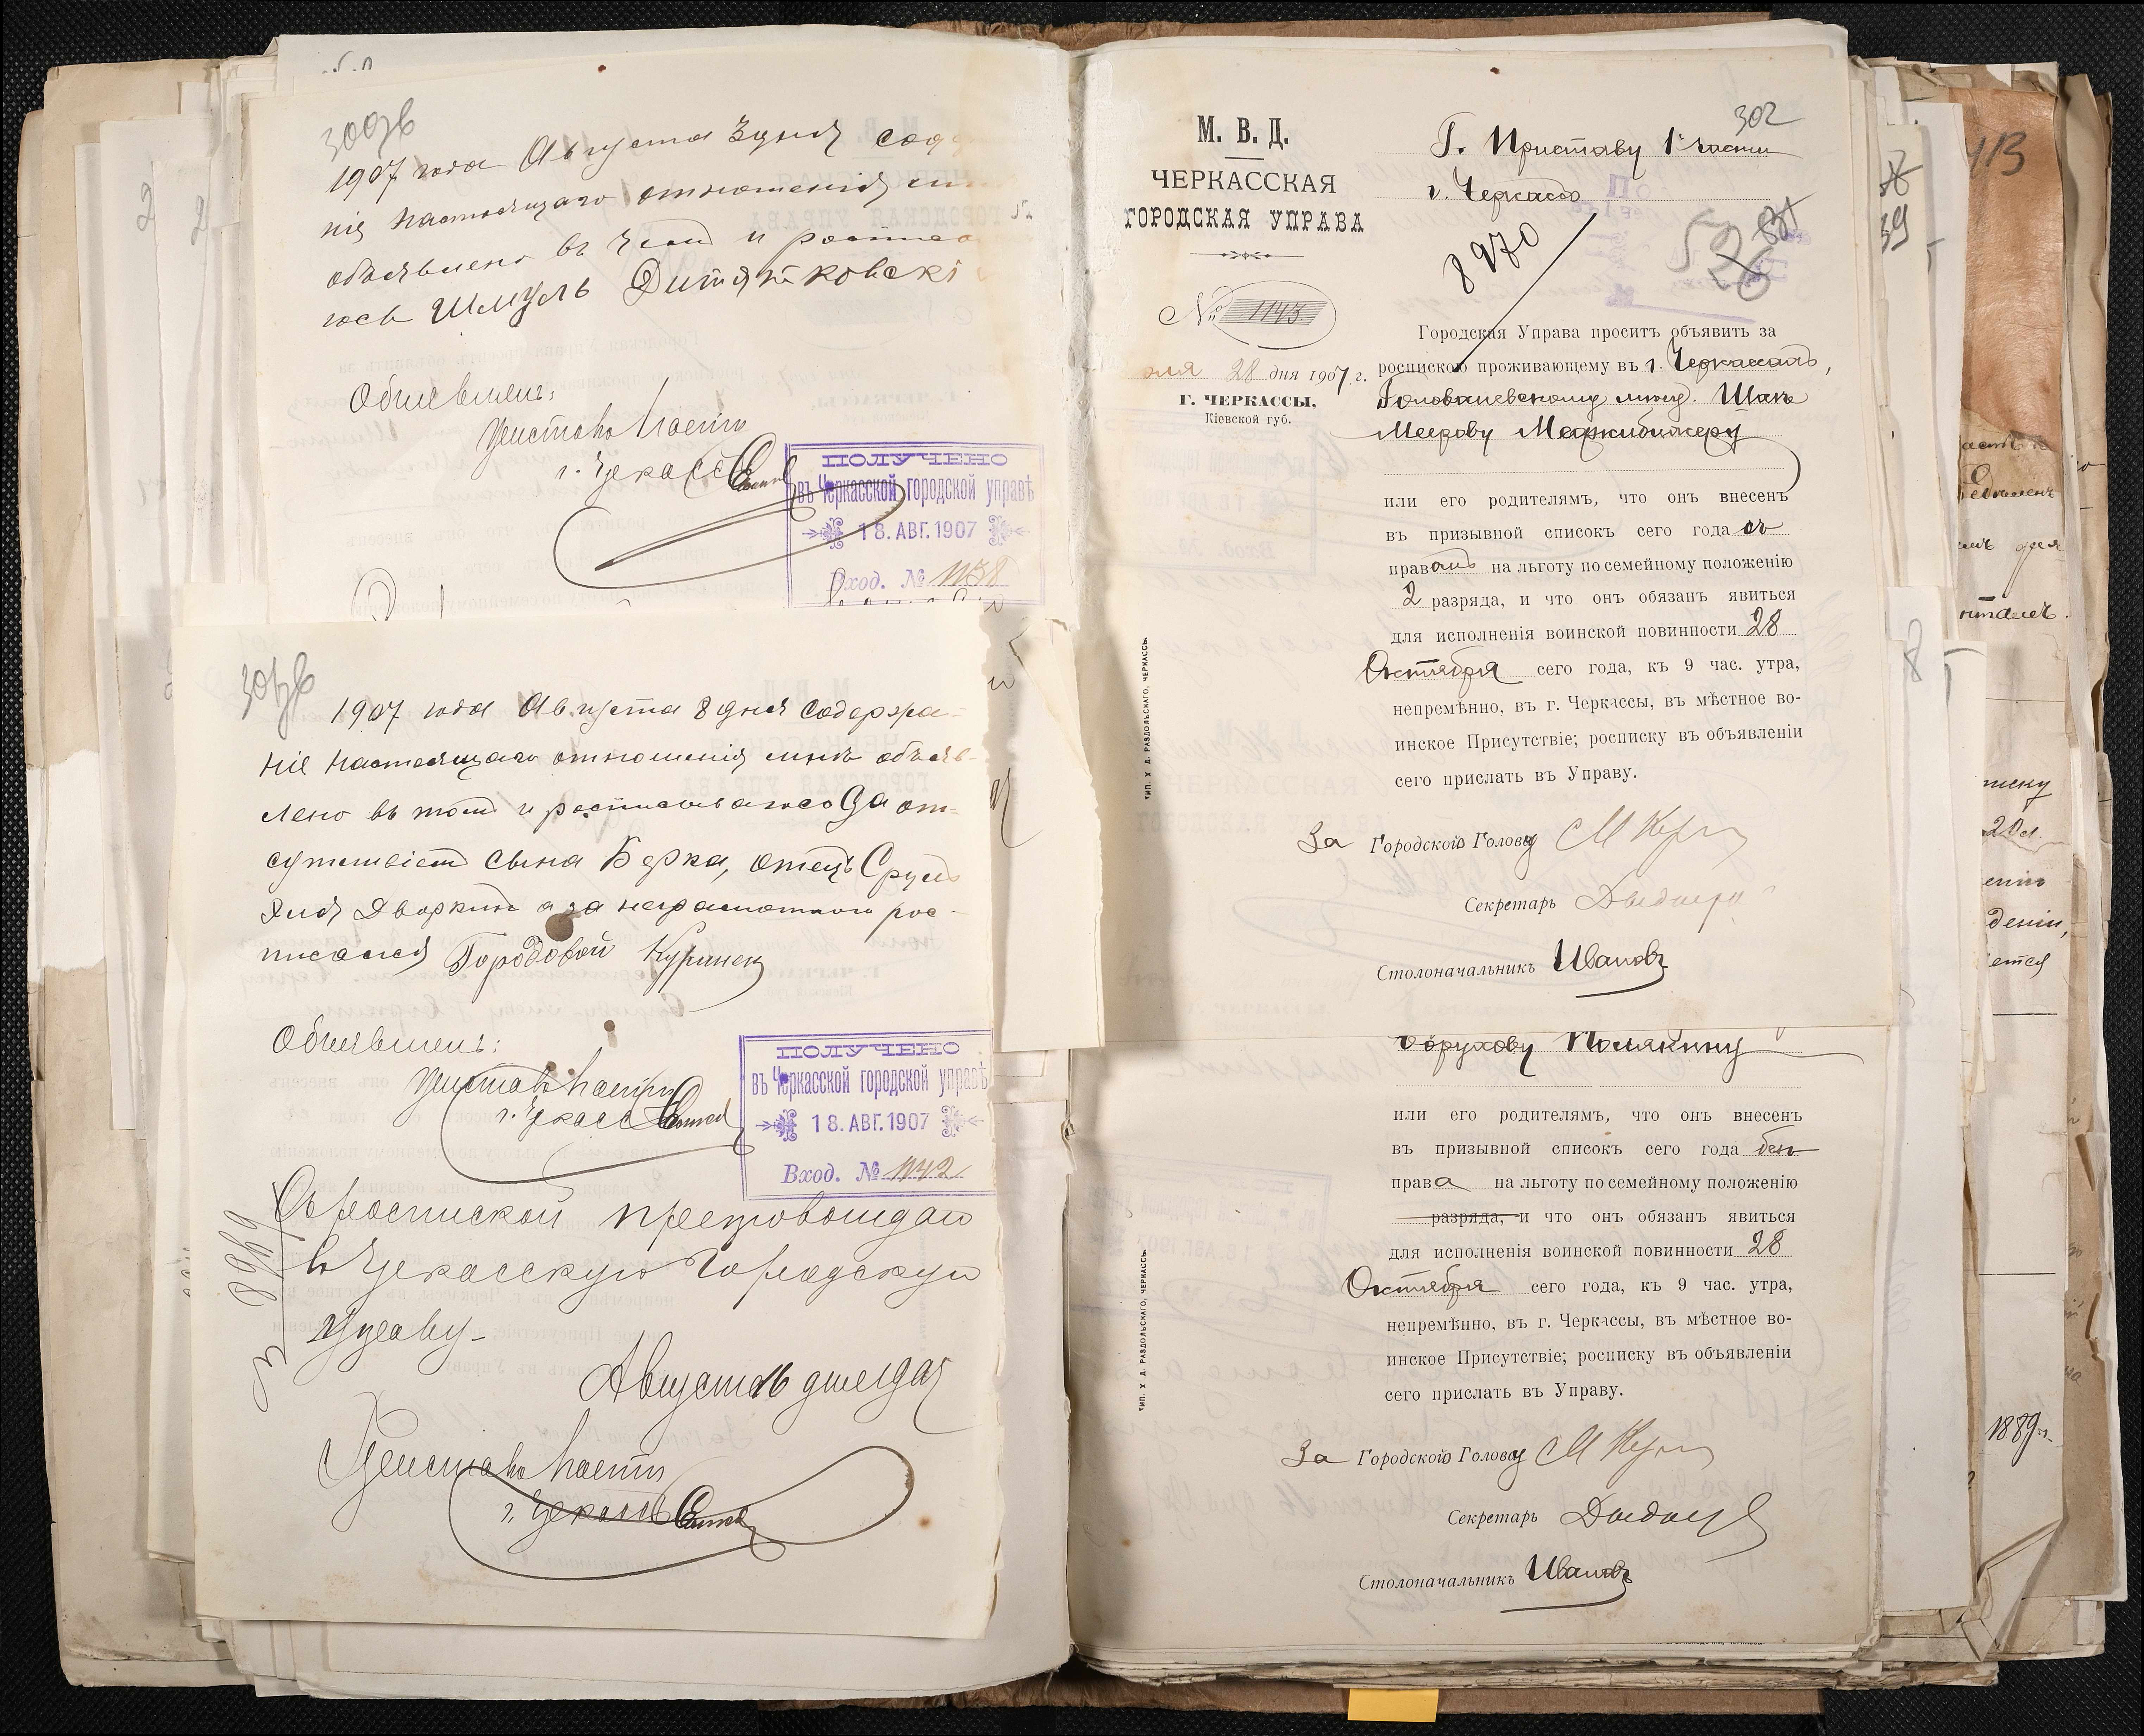 300об
1907 года Августа 3 дня сод
ніе настоящаго отношенія мн
объявлено въ чемъ и роспис
юсь Шмуль Дитятковскі
Объявилъ:
Приставъ 1 части
г. Черкассъ
ПОЛУЧЕНО
въ Черкасской городской управѣ
18. АВГ. 1907
Вход. № 1138
301об
1907 года Августа 8 дня содержа-
ніе настоящаго отношенія мнѣ объяв-
лено въ томъ и росписываюсь За от-
сутствіемъ сына Берка, отецъ Сруль
Дворкинъ а за неграмотнаго рос-
писался Городовой Куринец
Объявилъ:
Приставъ 1 части
г. Черкассъ
ПОЛУЧЕНО
въ Черкасской городской управѣ
18. АВГ. 1907
Вход. № 1142
Съ роспиской препровождаю
въ Черкасскую Городскую
Управу-
Августа 16 дня 1907
Приставъ 1 части
г. Черкассъ
302
М. В. Д.
ЧЕРКАССКАЯ
ГОРОДСКАЯ УПРАВА
№ 1143
юля 28 дня 1907 г.
Г. ЧЕРКАССЫ,
Кіевской губ.
Г. Приставу 1 части
г. Черкассъ
8970
536
Городская Управа проситъ объявить за
роспискою проживающему въ г. Черкассахъ,
Голованевскому мѣщ.
Меерову Межибижеру
или его родителямъ, что онъ внесенъ
въ призывной списокъ сего года съ
правомъ на льготу по семейному положенію
2 разряда, и что онъ обязанъ явиться
для исполненія воинской повинности 28
Октября сего года, къ 9 час. утра,
непремѣнно, въ г. Черкассы, въ мѣстное во-
инское Присутствіе; росписку въ объявленіи
сего прислать въ Управу.
За Городского Голову
Секретарь
Столоначальникъ Ивановъ
ТИП. Х Д. РАЗДОЛЬСКАГО, ЧЕРКАССЫ.
Борухову Полякину
или его родителямъ, что онъ внесенъ
въ призывной списокъ сего года безъ
права на льготу по семейному положенію
разряда, и что онъ обязанъ явиться
для исполненія воинской повинности 28
Октября сего года, къ 9 час. утра,
непремѣнно, въ г. Черкассы, въ мѣстное во-
инское Присутствіе; росписку въ объявленіи
сего прислать въ Управу.
За Городского Голову
Секретарь
Столоначальникъ Ивановъ
ТИП. Х Д. РАЗДОЛЬСКАГО, ЧЕРКАССЫ.
1889 г.